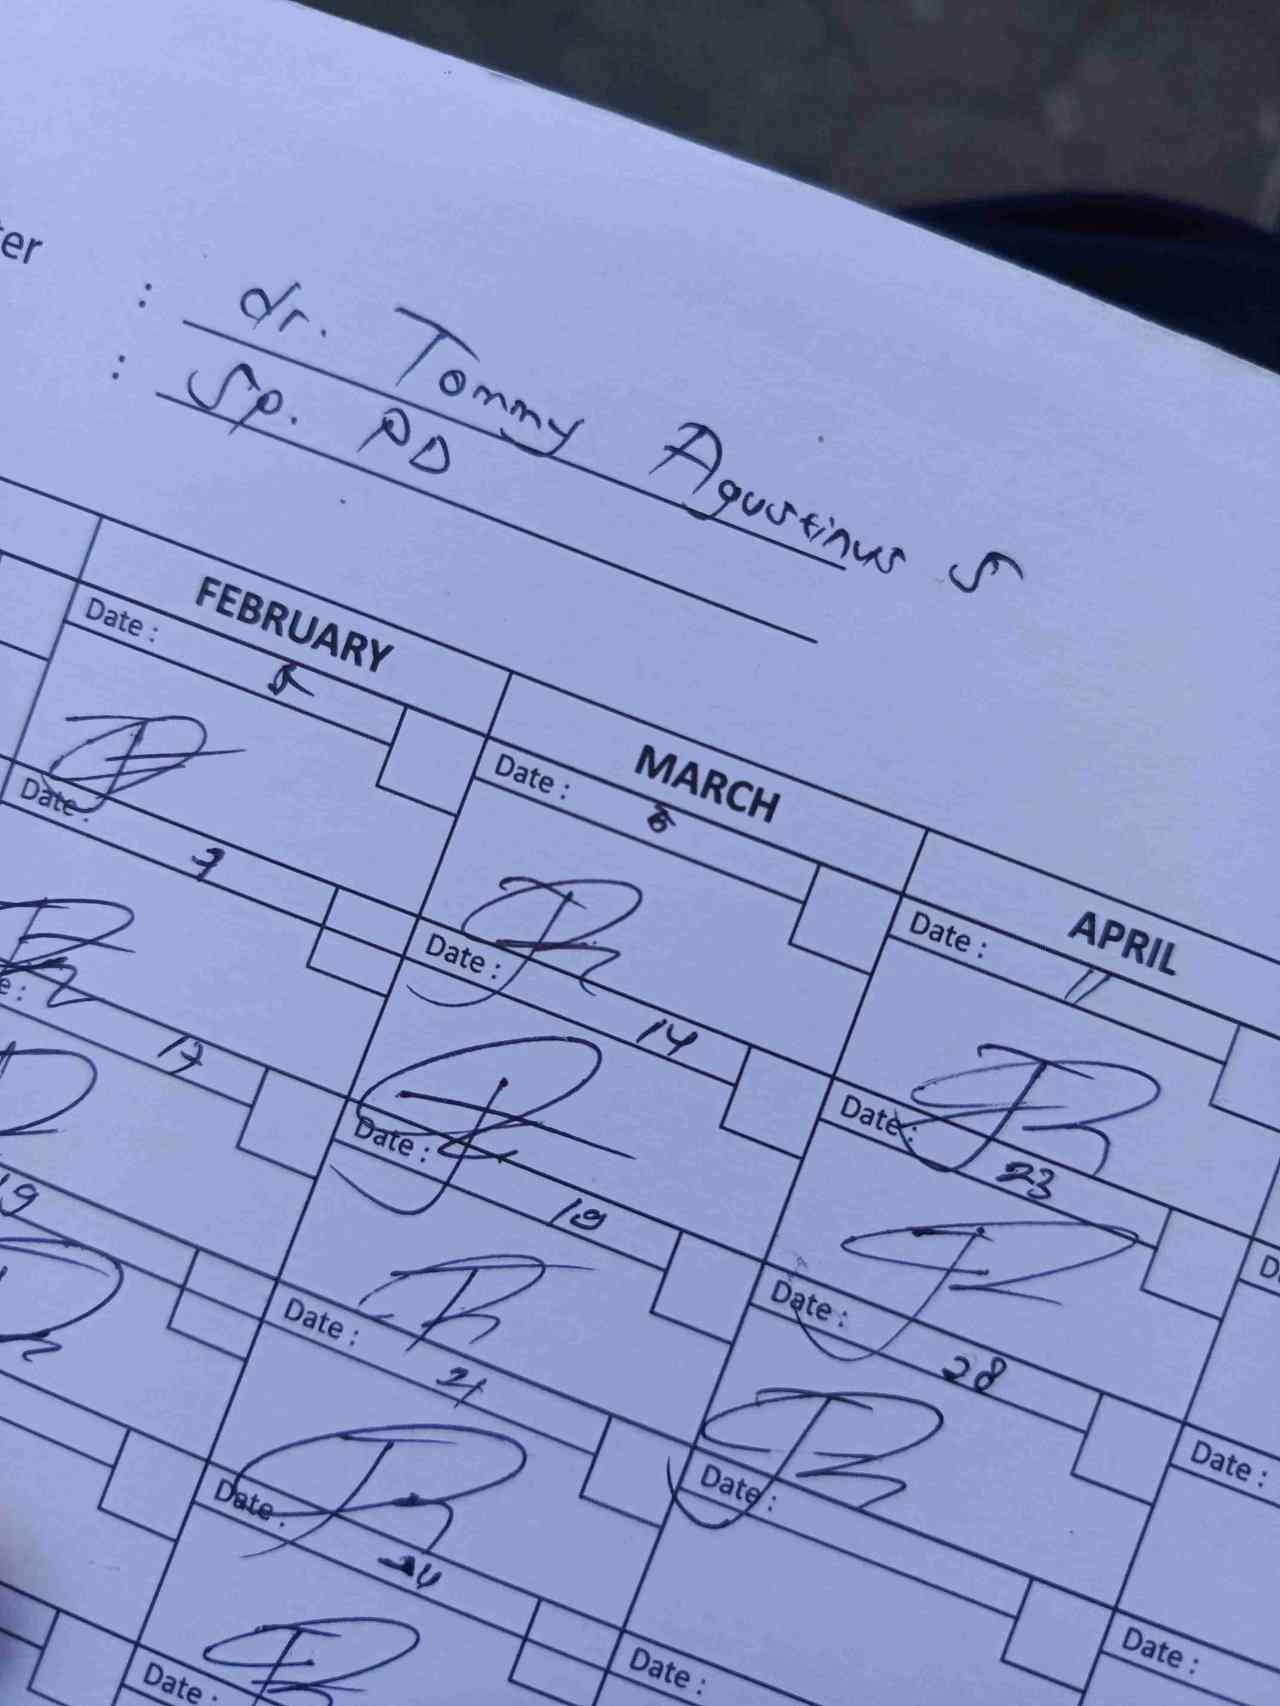 er
: dr. Tommy Agustinus S
: Sp. PD
FEBRUARY MARCH APRIL
Date : 5
Date : 6
Date : 11
Date : 7
Date : 14
Date : 23
e : 17
Date : 19
Date : 28
19
Date : 21
Date :
Date :
Date : 24
Date :
Date :
Date :